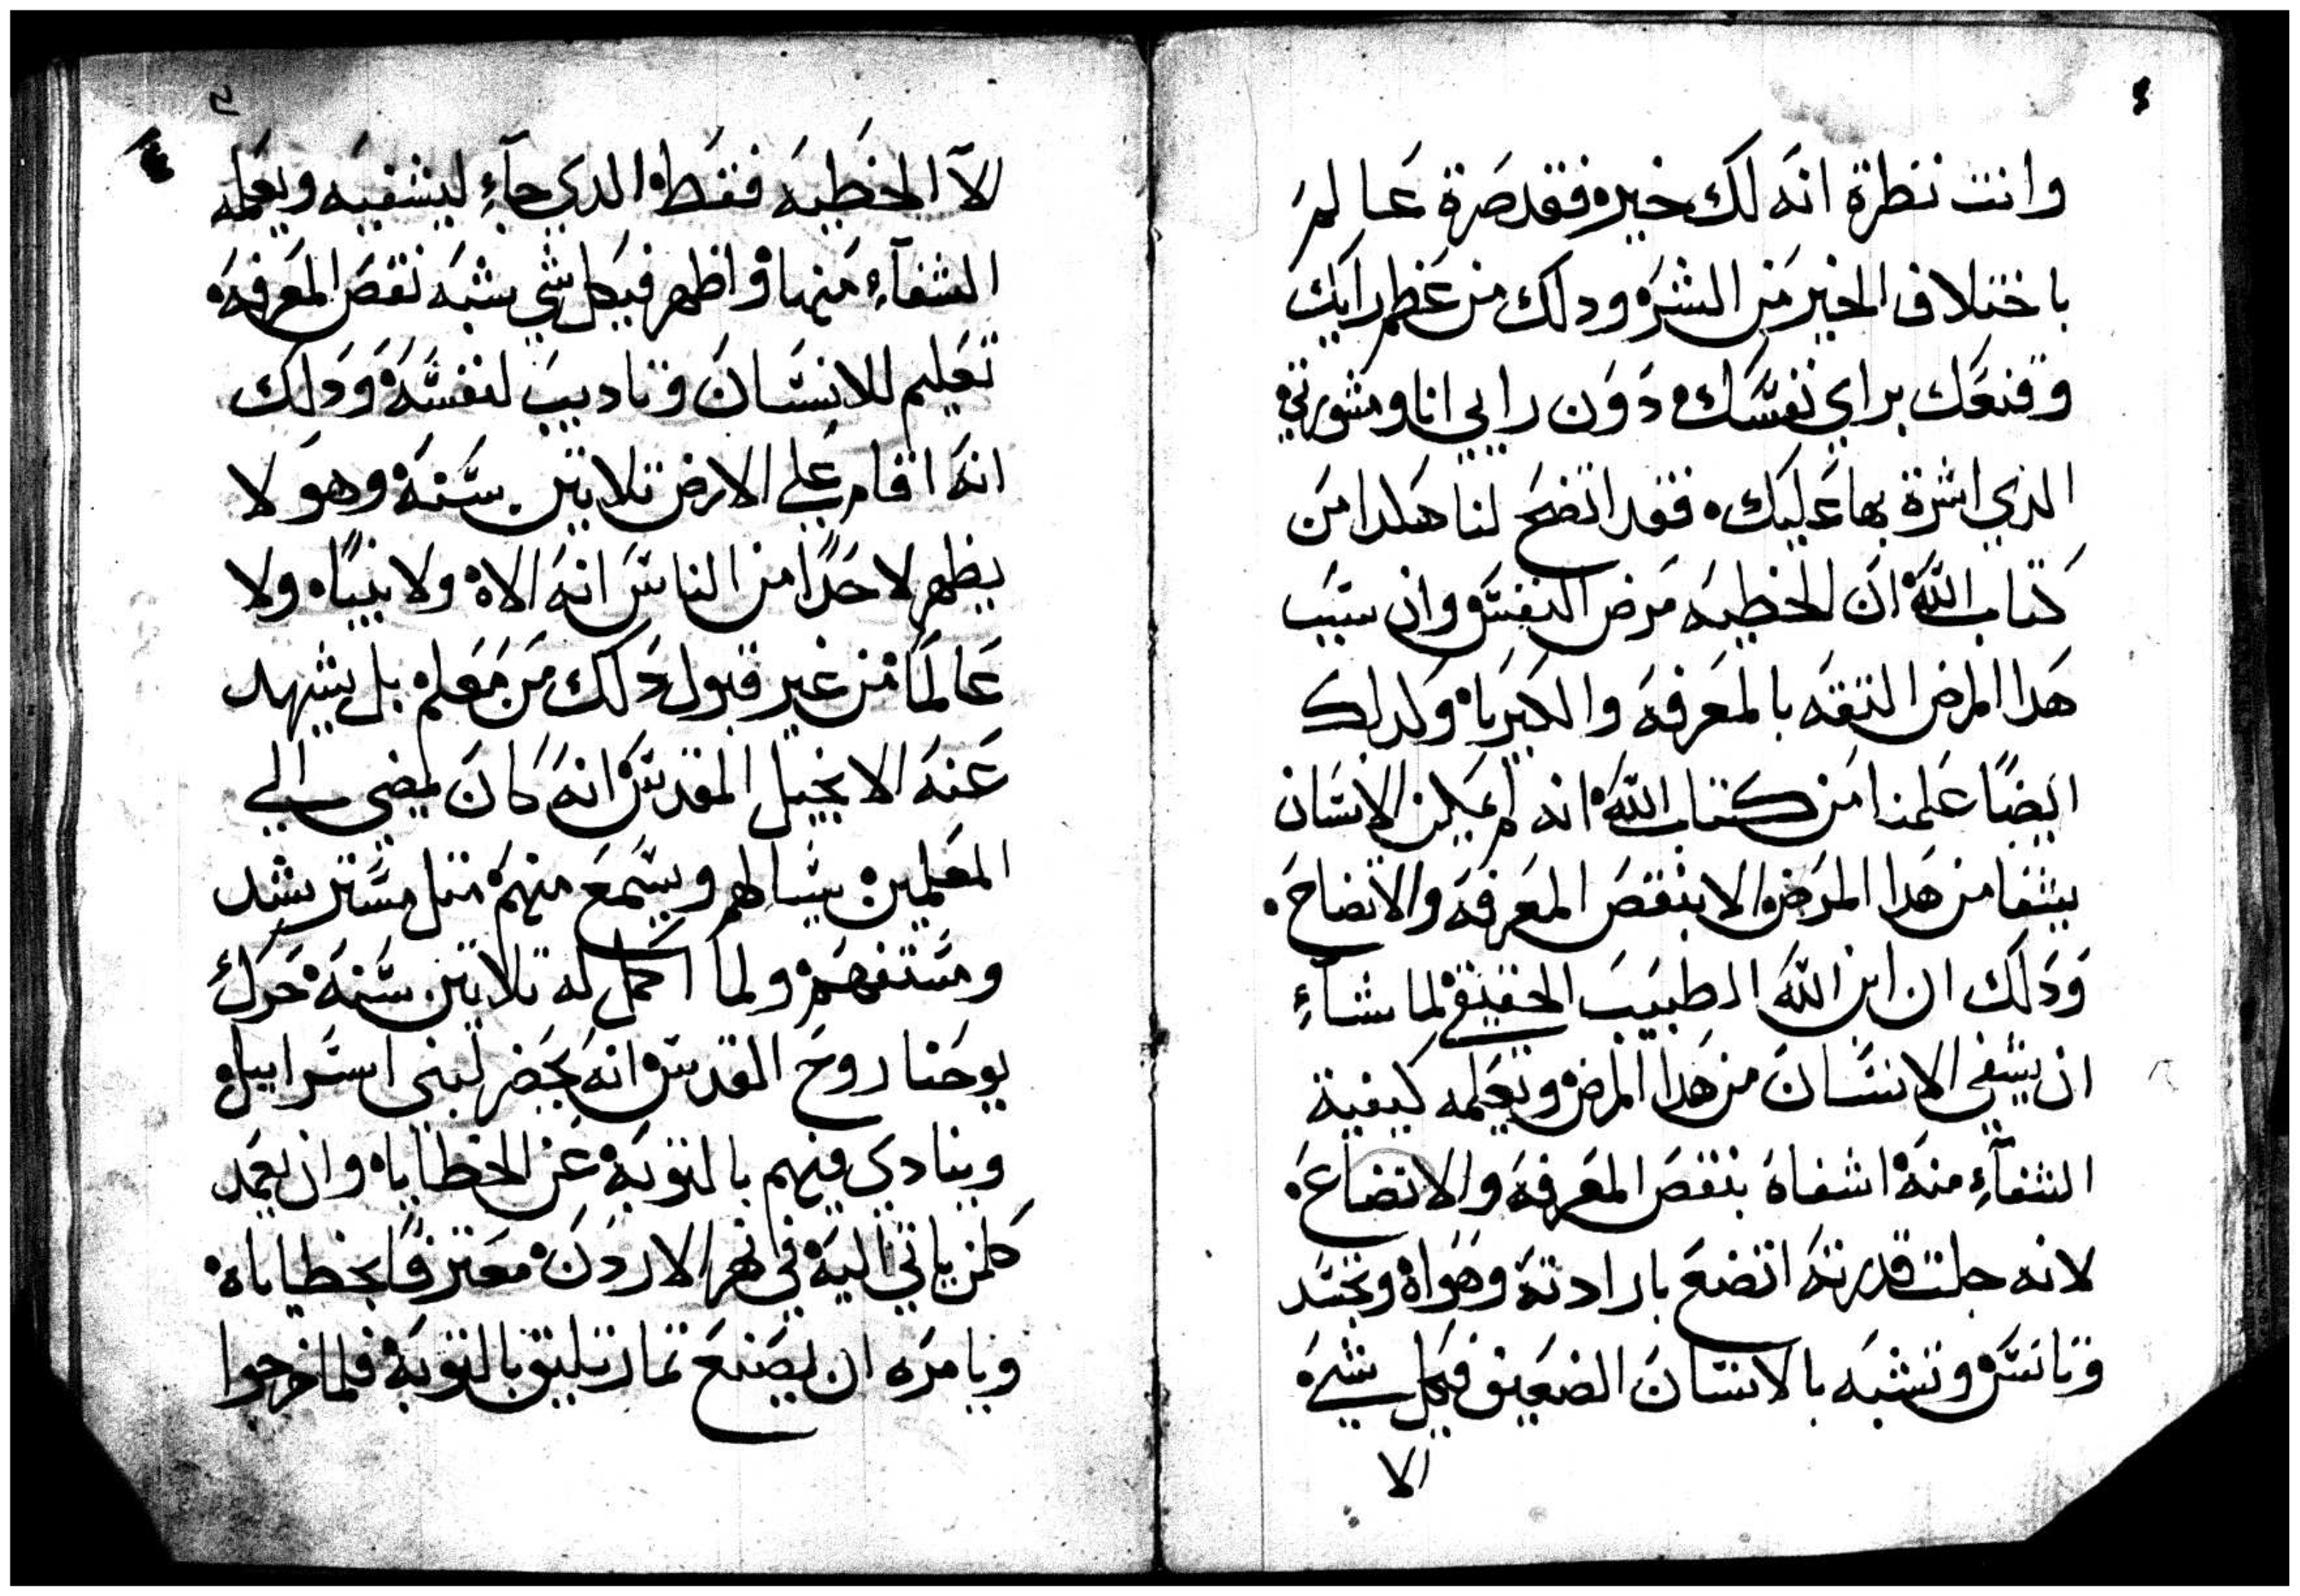 وانت نظرة انه لك خير فقد صرة عالم
باختلاف الخير من الشر ودلك من عظم رايك
وقنعك براي نفسك دون رايي انا ومشورتي
الذي اشرة بها عليك فقد اتضح لنا هكدا من
كتاب الله ان الخطيه مرض النفس وان سبب
هدا المرض التقه بالمعرفه والكبريا وكدلك
ايضًا علمنا من كتاب الله انه لم يمكن الانسان
يشفا من هدا المرض الا بنقص المعرفه والاتضاح
ودلك ان ابن الله الطبيب الحقيقي لما شاء
ان يشفي الانسان من هدا المرض وتعلمه كيفية
الشفآء منه اشفاه بنقص المعرفه والاتضاع
لانه جلت قدرته اتضع بارادته وهواه وتجسد
وتانس وتشبه بالانسان الضعيف فيكل شي
الا
٥
لآ الخطيه فقط الدي جآء ليشفيه ويعلمه
الشفآء منها واظهر فيكل شي يشبه نقص المعرفه
تعليم للانسان وتاديب لنفسه ودلك
انه اقام علي الارض تلاتين سنه وهو لا
يظهر لاحدًا من الناس انه الاه ولا نبيًا ولا
عالمًا من غير قبول دلك من معلم بل يشهد
عنه الانجيل المقدس انه كان يمضي الي
المعلمين يسالهم ويسمع منهم متل مسترشد
ومستفهم ولما اكمل له تلاتين سنه حرك
يوحنا روح القدس انه يحضر لبني اسراييل
وينادي فيهم بالتوبه عن الخطايا وان يعمد
كلمن ياتي اليه في نهر الاردن معترفًا بخطاياه
ويامره ان يصنع تمار تليق بالتوبه فلما خرجوا